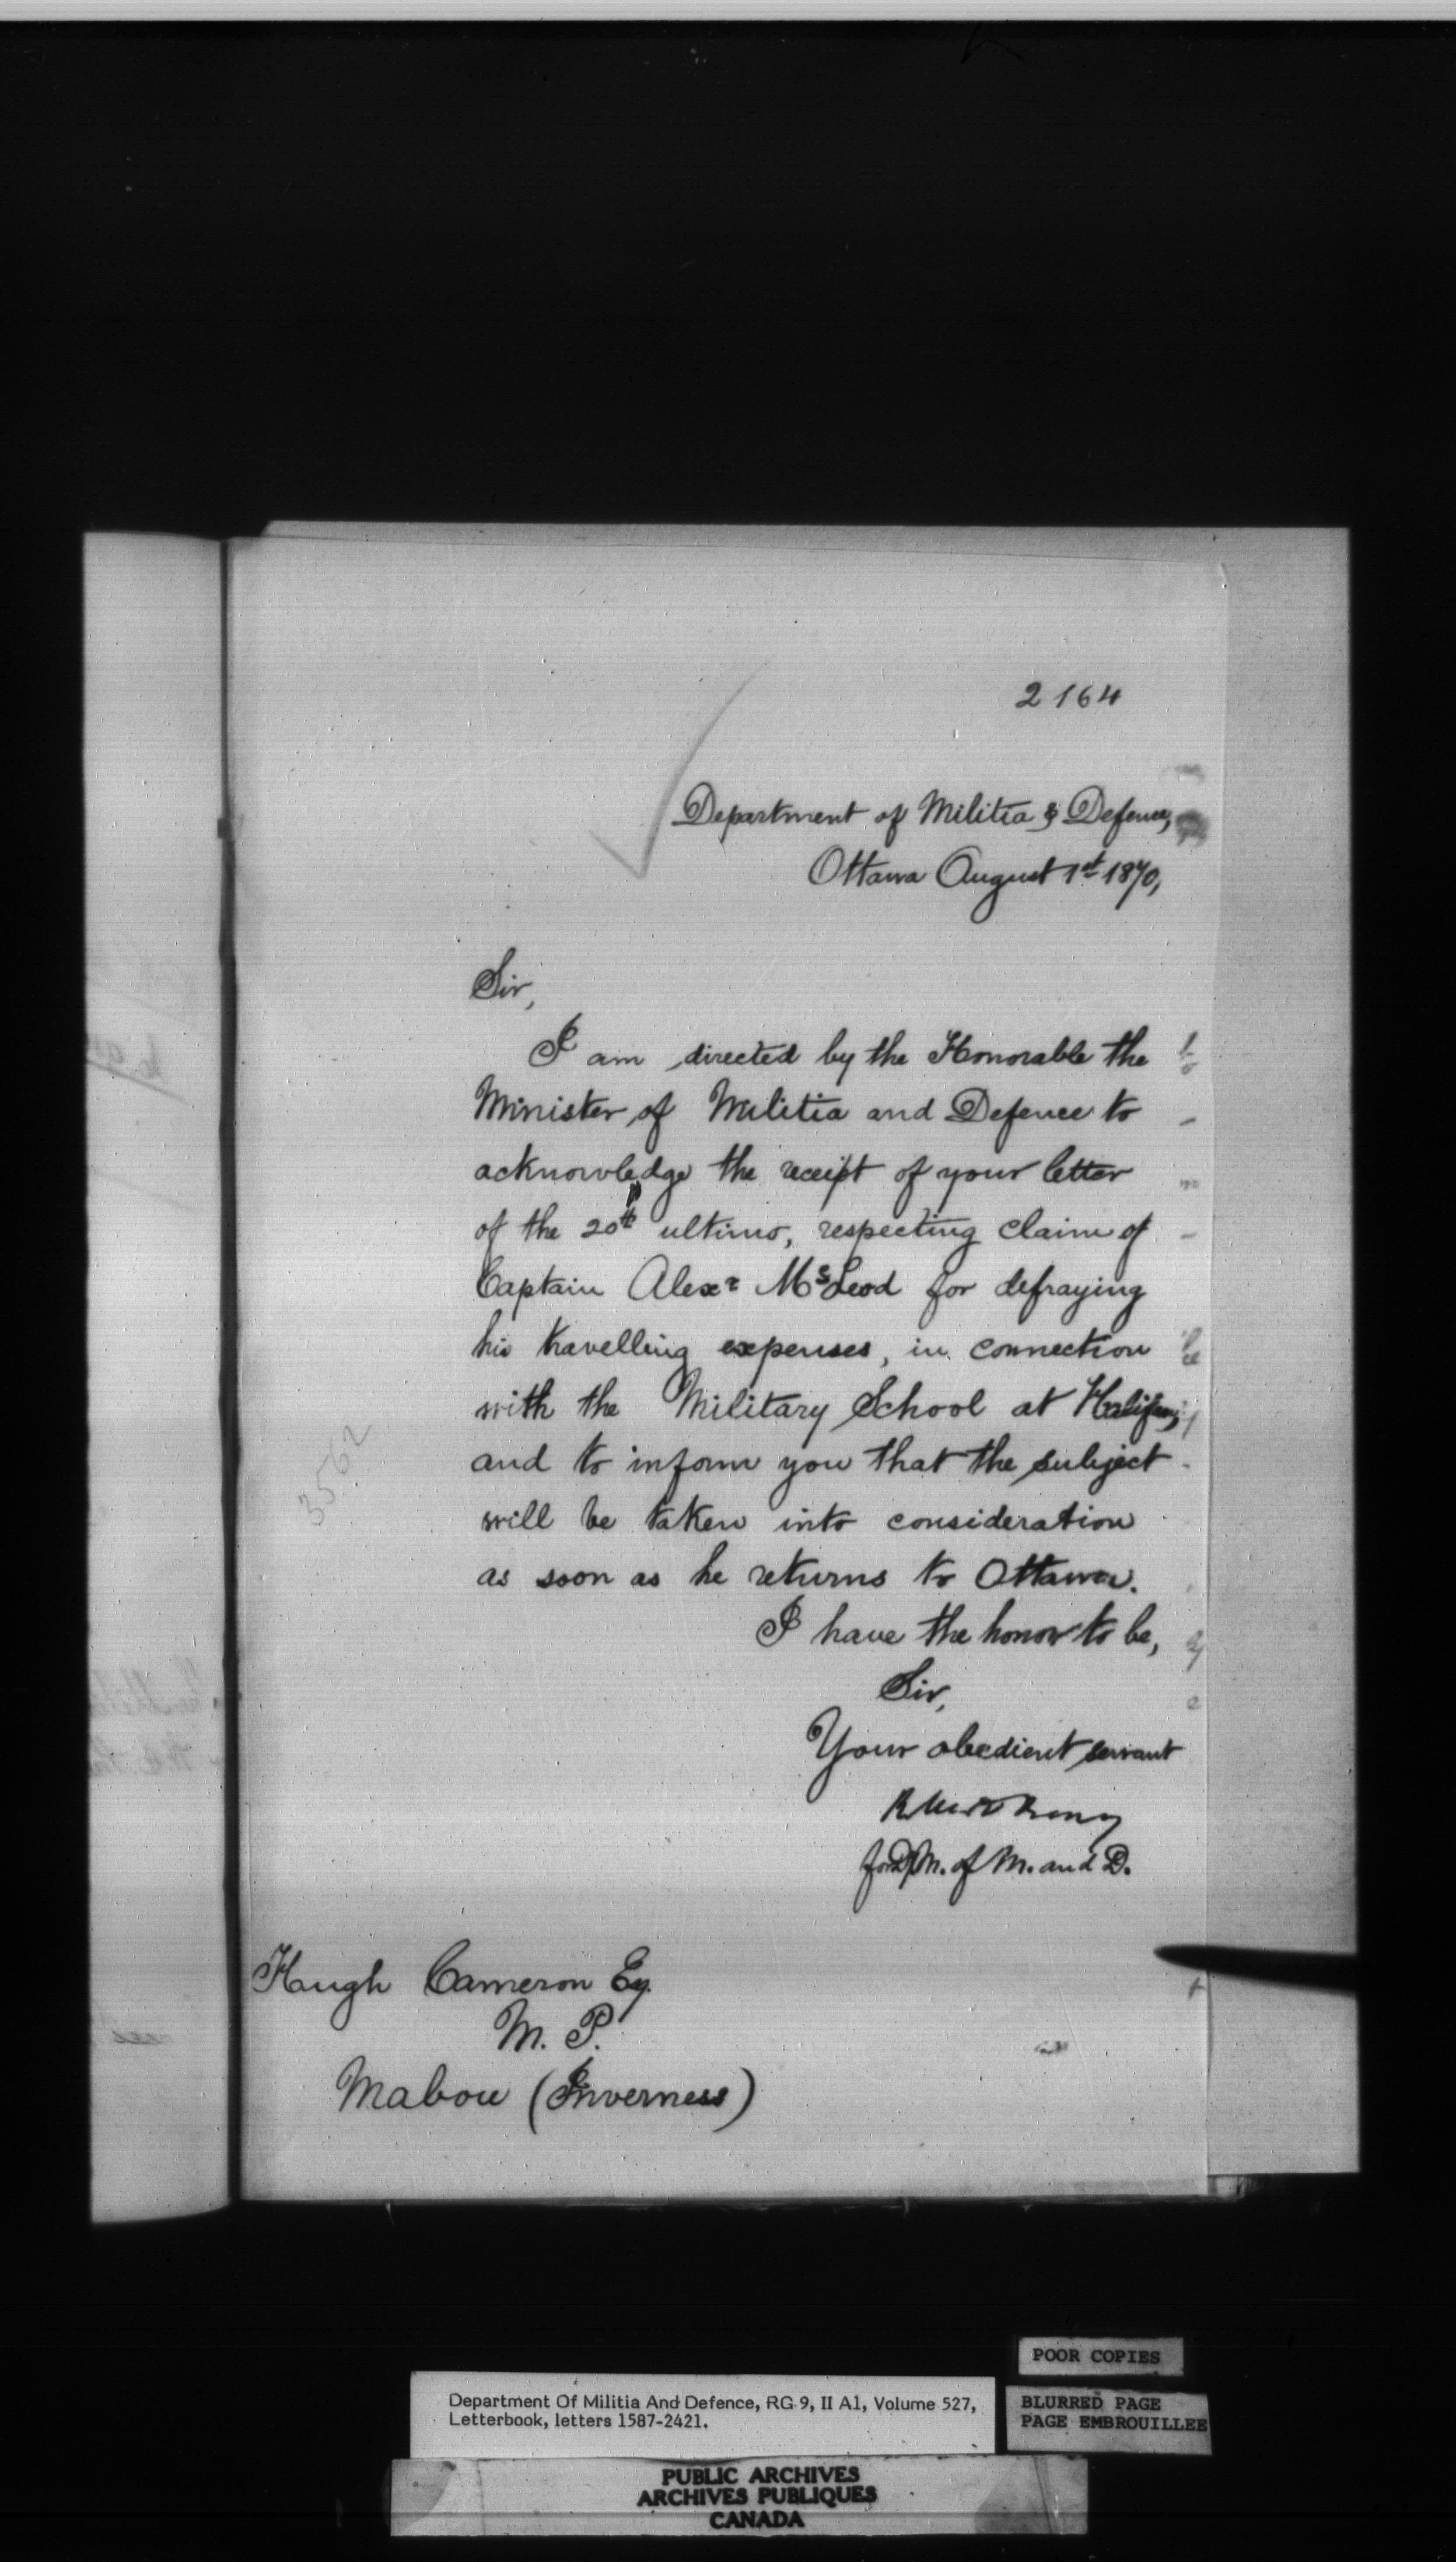 2164
Department of Militia & Defence,
Ottawa August 1st 1870,
Sir,
I am directed by the Honorable the
Minister of Militia and Defence to
acknowledge the receipt of your letter
of the 20th ultimo, respecting claim of
Captain Alexr McLeod for defraying
his travelling expenses, in connection
with the Military School at Halifax,
and to inform you that the subject
will be taken into consideration
as soon as he returns to Ottawa.
I have the honor to be,
Sir,
Your obedient servant
for D.M. of M. and D.
3562
Hugh Cameron Esq.
M. P.
Mabou (Inverness)
POOR COPIES
Department Of Militia And Defence, RG 9, II A1, Volume 527,
Letterbook, letters 1587-2421.
BLURRED PAGE
PAGE EMBROUILLEE
PUBLIC ARCHIVES
ARCHIVES PUBLIQUES
CANADA